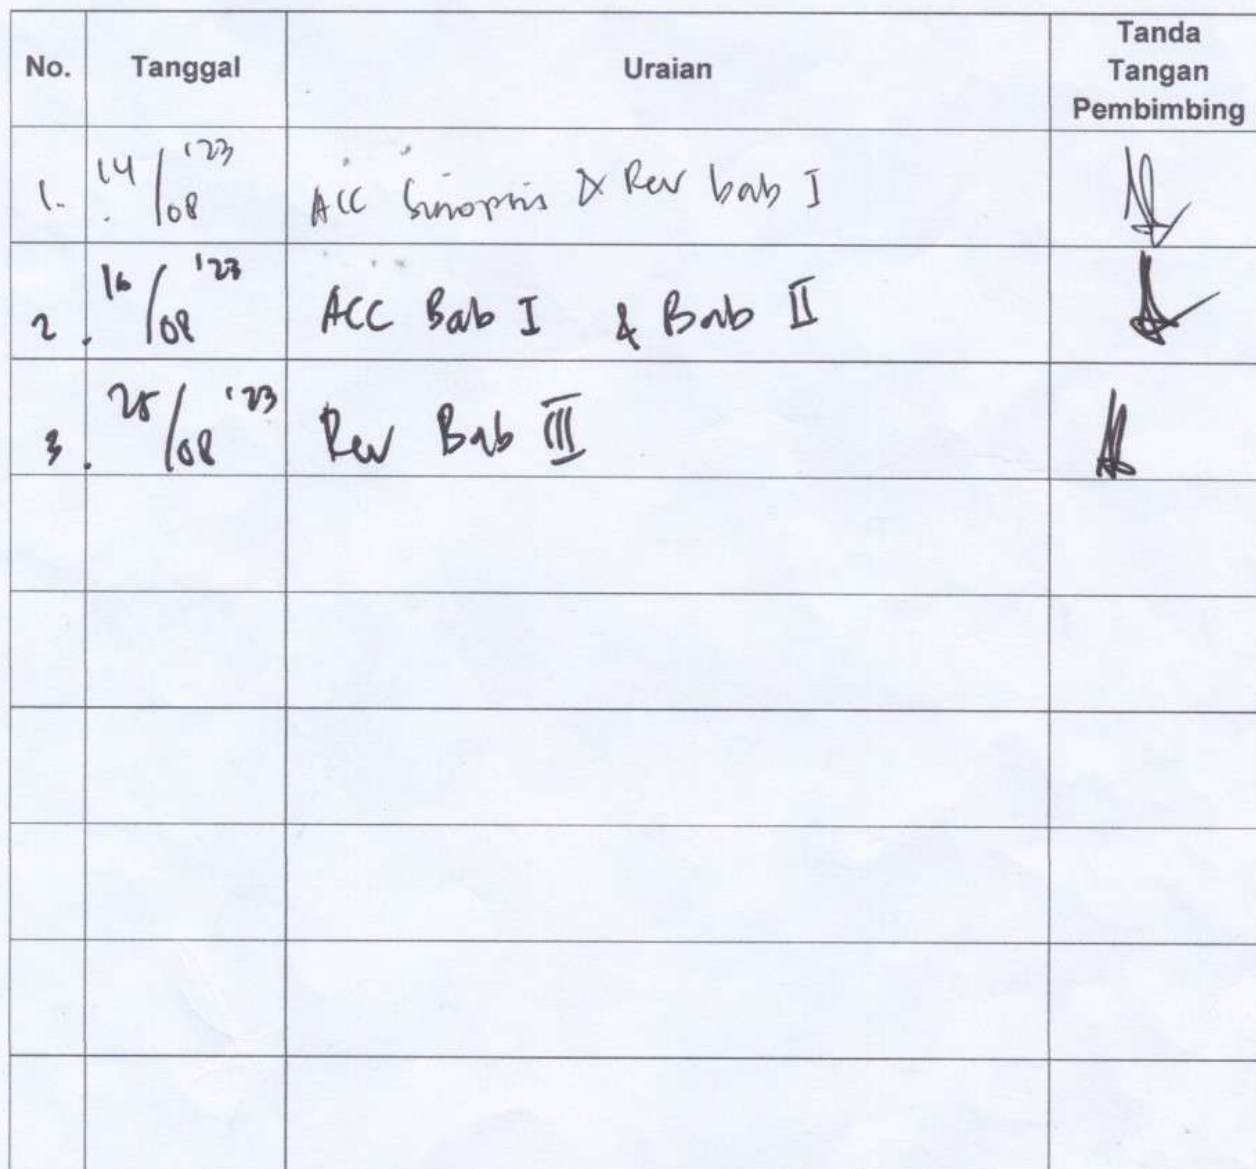 No. Tanggal Uraian Tanda Tangan Pembimbing
1. 14/08 '23 ACC Sinopsis & Rev bab I
2. 16/08 '23 ACC Bab I & Bab II
3. 25/08 '23 Rev Bab III